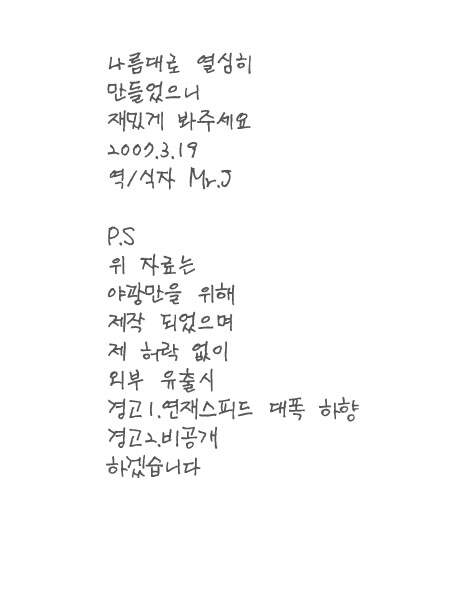 나름대로 열심히
만들었으니
재밌게 봐주세요
2007.3.19
역/식자 Mr.J
P.S
위 자료는
야광만을 위해
제작 되었으며
제 허락 없이
외부 유출시
경고1.연재스피드 대폭 하향
경고2.비공개
하겠습니다